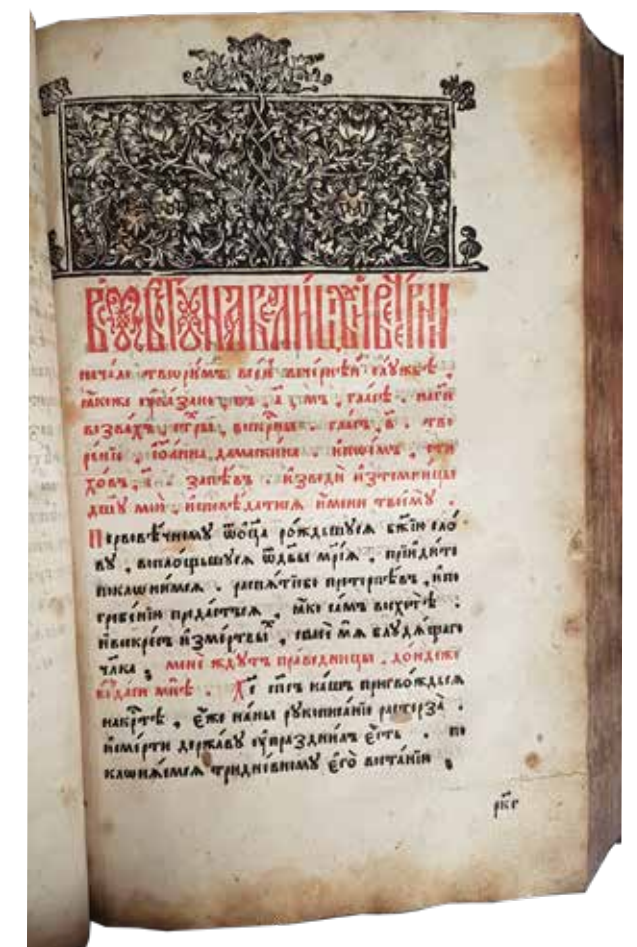 начало творимъ всей вечернѣй слꙋжбѣ ,
ꙗкоже ᲂу҆ка́зано , въ , а҃ , гла́сѣ . на гдⷭ҇и
возва́хъ , стрⷯы , воскрⷭ҇ны . гла́съ , в҃ . тво
ре́нїе , і҆ѡа́нна дамаскина . сти
хо́въ , запѣ́въ . и҆зведѝ и҆зтемни́цы
дш҃ꙋ мою̀ , и҆сповѣ́датисѧ и҆́мени твоемꙋ̀ .
Первовѣ́чномꙋ ѿѻц҃а̀ ро́ждьшꙋсѧ бж҃їю сло́
вꙋ , воплощьшꙋсѧ ѿдв҃ы мр҃і́ѧ , прїиди́те
поклони́мсѧ . распѧ́тїебо претерпѣ́въ , ипо
гребе́нїю предастъсѧ , ꙗ҆́ко са́мъ восхотѣ̀ .
и҆воскре́съ и҆зме́ртвыⷯ , спасе́ мѧ блꙋдѧ́щаго
чл҃ка , менѐ ждꙋ́тъ пра́ведницы , до́ндеже
возда́си мнѣ̀ . Хе҃ сп҃съ на́шъ пригво́ждьсѧ
накрⷭ҇тѣ , є҆́же на́ны рꙋкописа́нїе растерза̀ .
и҆сме́рти держа́вꙋ ᲂу҆праздни́лъ є҆́сть . по
клонѧ́емсѧ тридне́вномꙋ є҆гѡ̀ воста́нїю ,